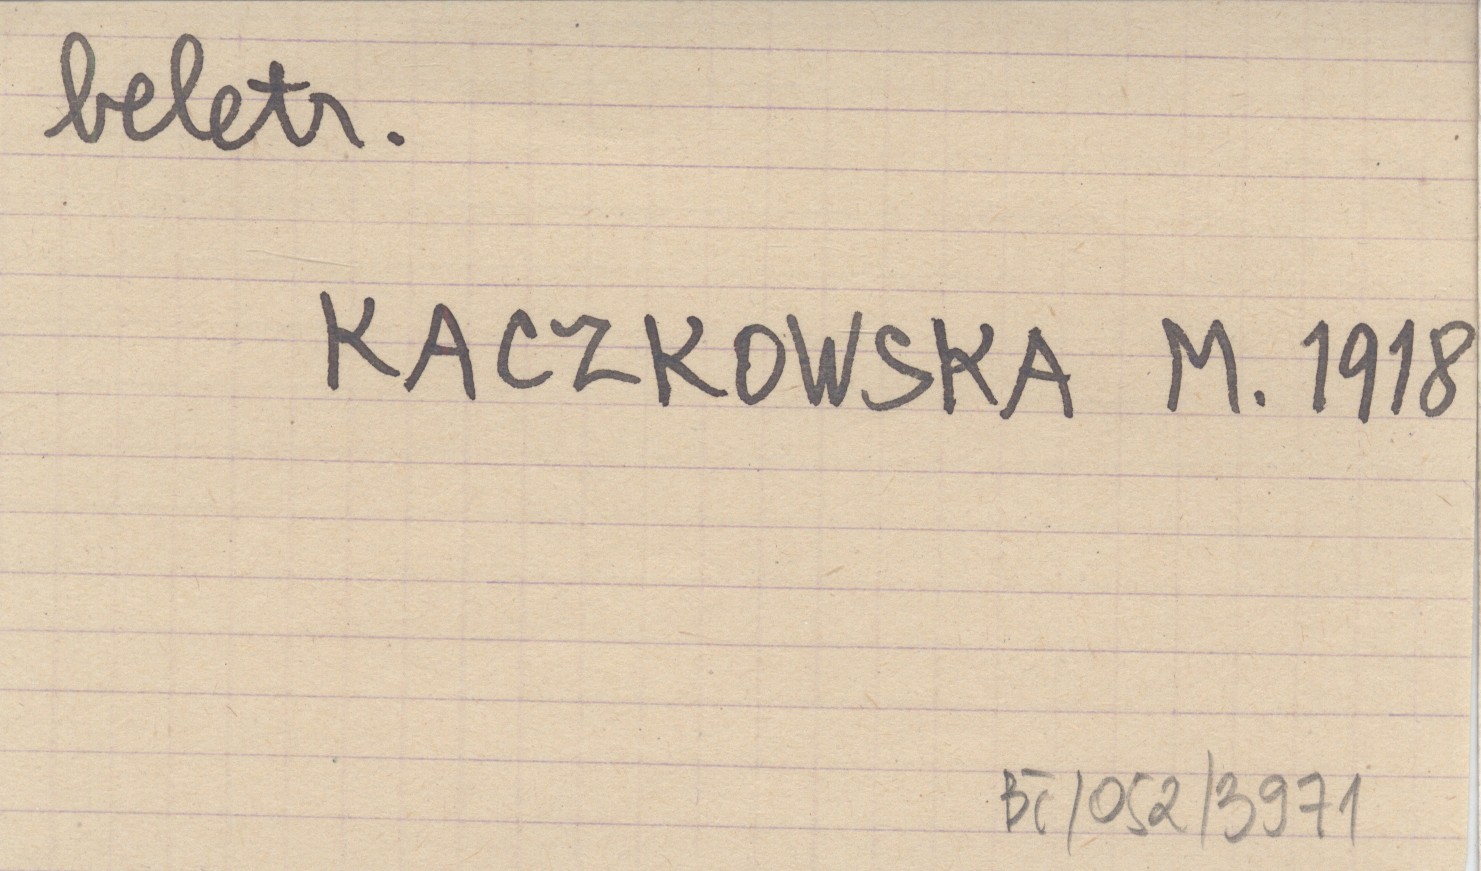 beletr.
KACZKOWSKA M. 1918
BI/052/3971